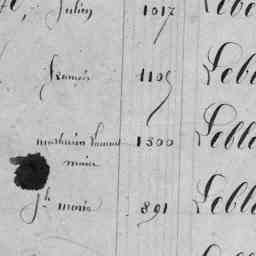 Julien 1017 Lebe
François 1109 Leb
mathurin 1300 Lebl
marie
Jh marie 891 Lebl